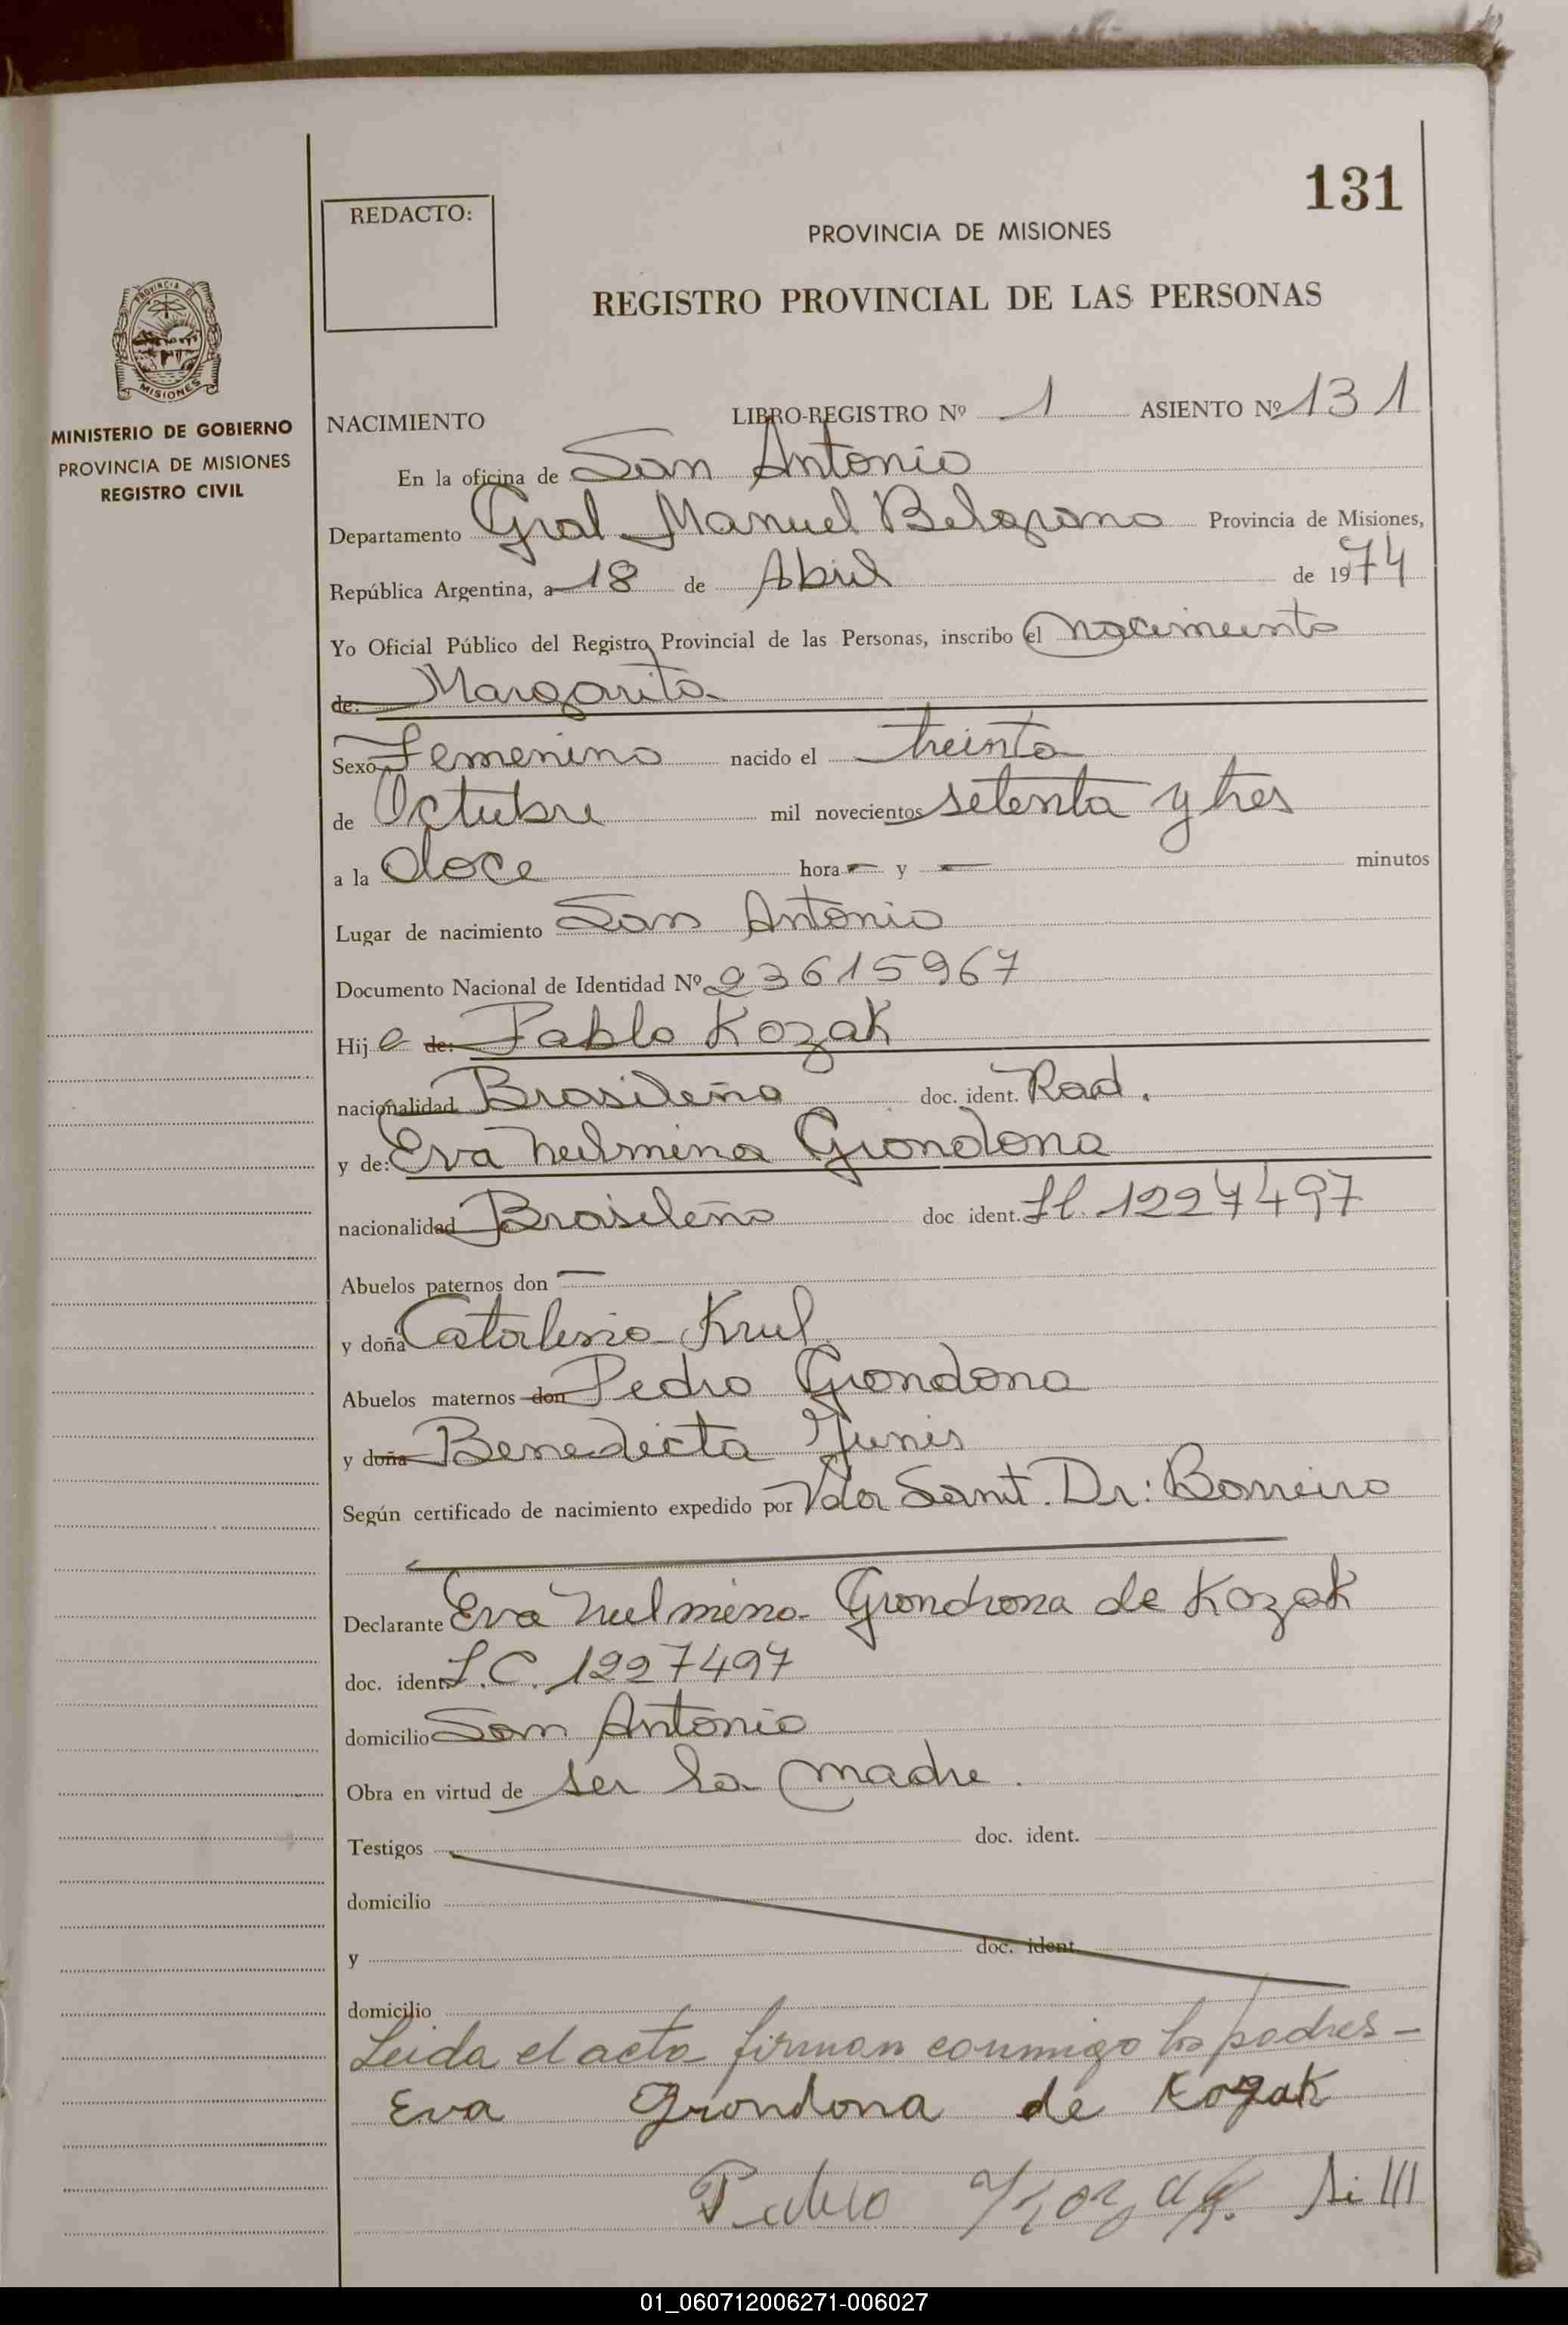 131
REDACTO:
PROVINCIA DE MISIONES
REGISTRO PROVINCIAL DE LAS PERSONAS
PROVINCIA DE
MISIONES
MINISTERIO DE GOBIERNO
PROVINCIA DE MISIONES
REGISTRO CIVIL
NACIMIENTO LIBRO-REGISTRO Nº 1 ASIENTO Nº 131
En la oficina de San Antonio
Departamento Gral Manuel Belgrano Provincia de Misiones,
República Argentina, a 18 de Abril de 1974
Yo Oficial Público del Registro Provincial de las Personas, inscribo el nacimiento
de: Margarita
Sexo Femenino nacido el treinta
de Octubre mil novecientos setenta y tres
a la doce hora - y - minutos
Lugar de nacimiento San Antonio
Documento Nacional de Identidad Nº 23615967
Hij a de: Pablo Kozak
nacionalidad Brasileña doc. ident. Rad.
y de: Eva Grondona
nacionalidad Brasileña doc ident. 1227497
Abuelos paternos don —
y doña Catalina Krul
Abuelos maternos don Pedro Grondona
y doña Benedicta
Según certificado de nacimiento expedido por Sanit. Dr: Borreiro
Declarante Eva Grondrona de Kozak
doc. ident. L.C. 1227497
domicilio San Antonio
Obra en virtud de ser la madre.
Testigos doc. ident.
domicilio
y doc. ident.
domicilio
Leida el acta firman conmigo los padres -
Eva Grondona de Kozak
Kozak.
01_060712006271-006027